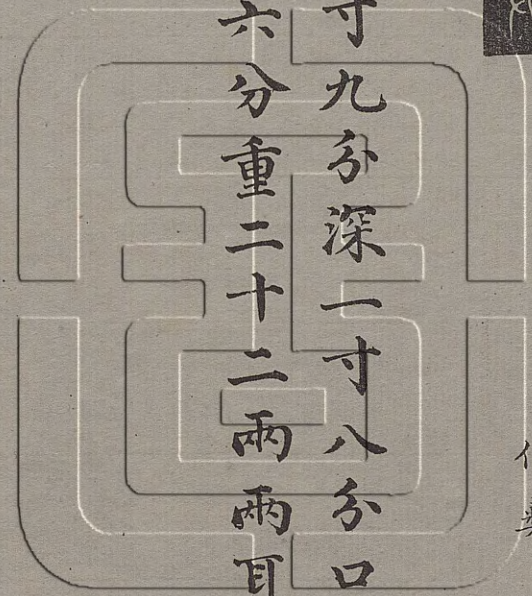 寸九分深一寸八分口
六分重二十二兩兩耳